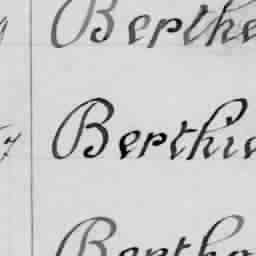 Berthe
7 Berthie
Bertho